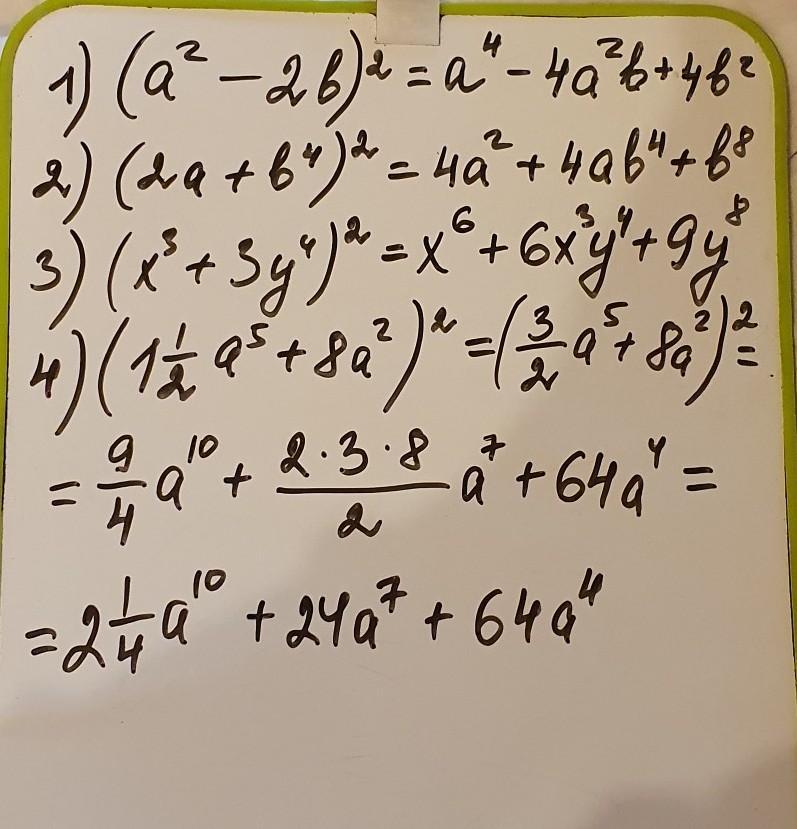 1) (a² − 2b)² = a⁴ − 4a²b + 4b²
2) (2a + b⁴)² = 4a² + 4ab⁴ + b⁸
3) (x³ + 3y⁴)² = x⁶ + 6x³y⁴ + 9y⁸
4) (1 1/2 a⁵ + 8a²)² = (3/2 a⁵ + 8a²)² =
= 9/4 a¹⁰ + (2·3·8)/2 a⁷ + 64a⁴ =
= 2 1/4 a¹⁰ + 24a⁷ + 64a⁴